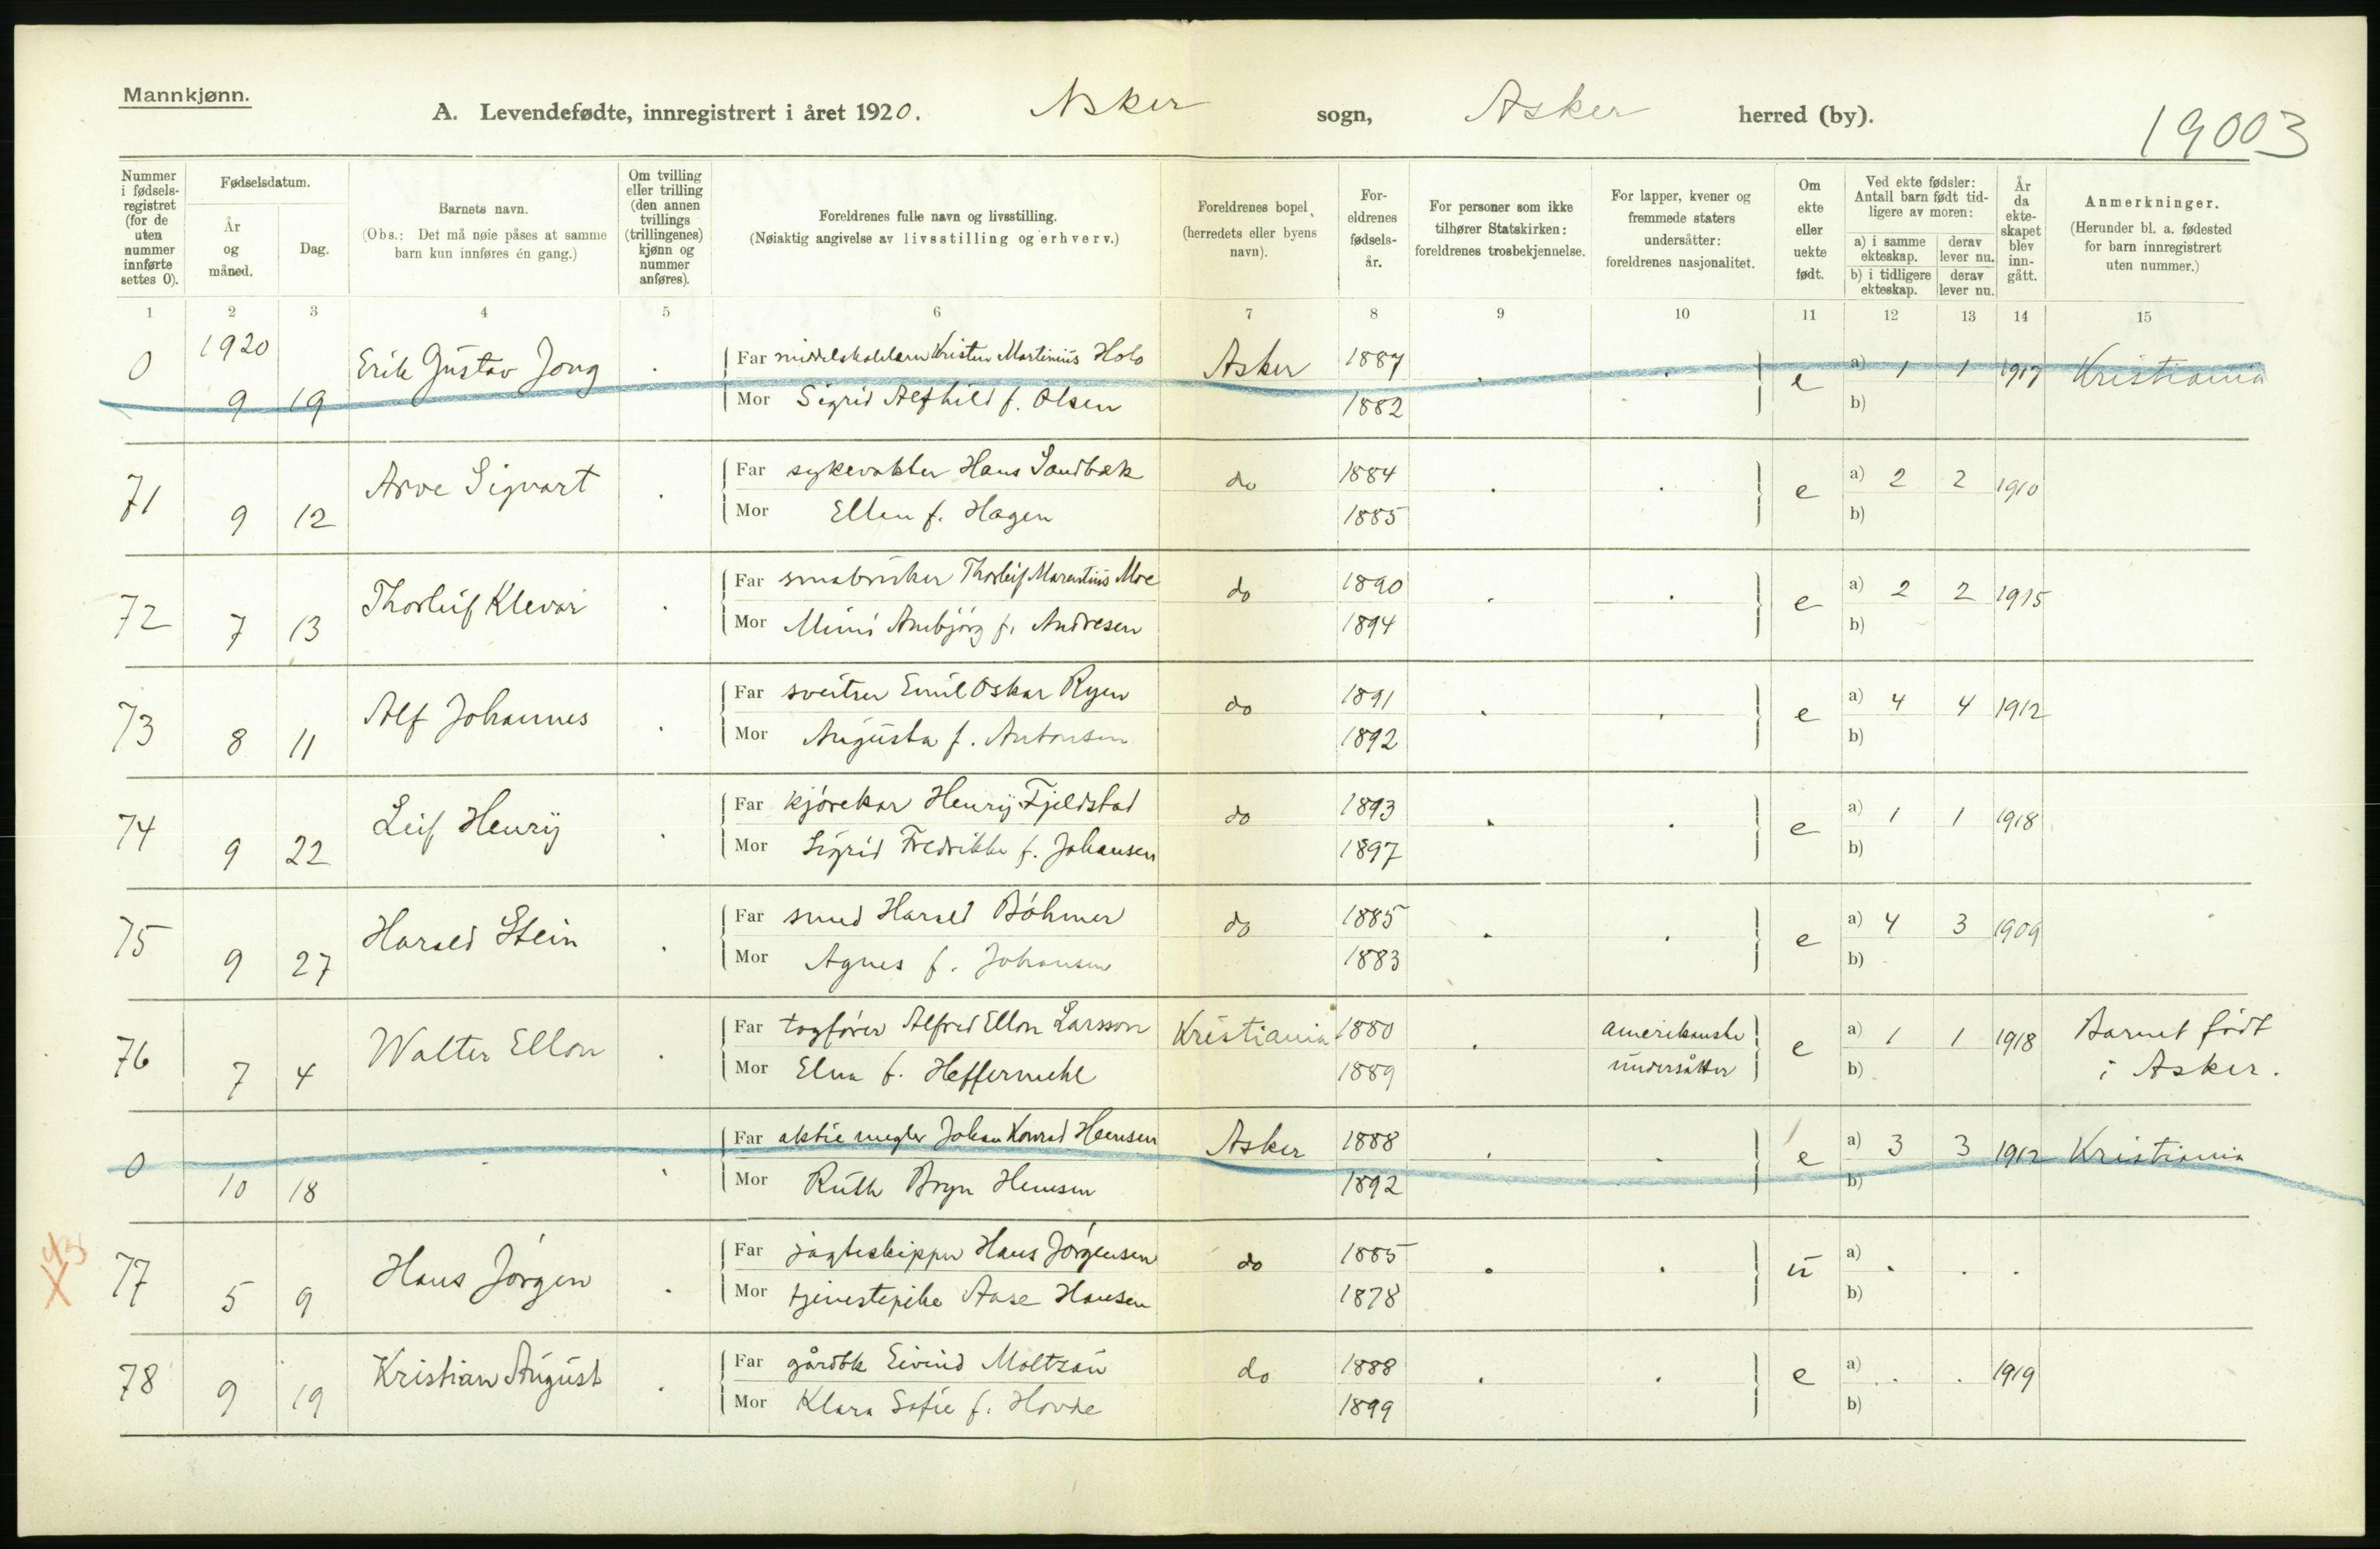 Mannkjønn.
A. Levendefødte, innregistrert i året 1920. Asker sogn, Asker herred (by). 19003
Nummer i fødselsregistret (for de uten nummer innførte settes 0).
Fødselsdatum.
År og måned.
Dag.
Barnets navn.
(Obs.: Det må nøie påses at samme barn kun innføres én gang.)
Om tvilling eller trilling (den annen tvillings (trillingenes) kjønn og nummer anføres).
Foreldrenes fulle navn og livsstilling.
(Nøiaktig angivelse av livsstilling og erhverv.)
Foreldrenes bopel (herredets eller byens navn).
Foreldrenes fødselsår.
For personer som ikke tilhører Statskirken: foreldrenes trosbekjennelse.
For lapper, kvener og fremmede staters undersåtter: foreldrenes nasjonalitet.
Om ekte eller uekte født.
Ved ekte fødsler: Antall barn født tidligere av moren:
a) i samme ekteskap. derav lever nu.
b) i tidligere ekteskap. derav lever nu.
År da ekteskapet blev inngått.
Anmerkninger.
(Herunder bl. a. fødested for barn innregistrert uten nummer.)
1 2 3 4 5 6 7 8 9 10 11 12 13 14 15
0 1920 9 19 Erik Gustav Jong . Far Kristen Martinius Holo Asker 1887 . . e a) 1 1 1917 Kristiania
Mor Sigrid Alfhild f. Olsen 1882 b)
71 9 12 Arve Sigvart . Far sykevokter Hans Sandbæk do 1884 . . e a) 2 2 1910
Mor Ellen f. Hagen 1885 b)
72 7 13 Thorleif Klevar . Far småbruker Thorleif Moe do 1890 . . e a) 2 2 1915
Mor Mimi Ambjörg f. Andresen 1894 b)
73 8 11 Alf Johannes . Far sveitser Emil Oskar Ryen do 1891 . . e a) 4 4 1912
Mor Augusta f. Antonsen 1892 b)
74 9 22 Leif Henry . Far kjörekar Henry Fjeldstad do 1893 . . e a) 1 1 1918
Mor Sigrid Fredrikke f. Johansen 1897 b)
75 9 27 Harald Stein . Far smed Harald Böhmer do 1885 . . e a) 4 3 1909
Mor Agnes f. Johansen 1883 b)
76 7 4 Walter Ellon . Far togförer Alfred Ellon Larsson Kristiania 1880 . amerikanske e a) 1 1 1918 Barnet födt
Mor Elna f. Heffermehl 1889 undersåtter b) i Asker.
0 10 18 . . Far aktiemegler Johan Konrad Hemsen Asker 1888 . . e a) 3 3 1912 Kristiania
Mor Ruth Bryn Hemsen 1892 b)
77 5 9 Hans Jörgen . Far jagteskipper Hans Jörgensen do 1885 . . u a) . . .
Mor tjenestepike Aase Hansen 1878 b)
78 9 19 Kristian August . Far gårdbk Eivind Moltzau do 1888 . . e a) . . 1919
Mor Klara Sofie f. Hovde 1899 b)